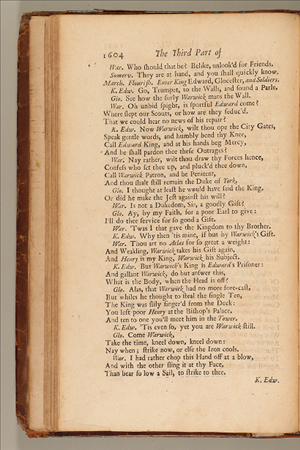 1604 The Third Part of
War. Who should that be? Belike, unlook'd for Friends.
Somerv. They are at hand, and you shall quickly know.
March. Flourish. Enter King Edward, Glocester, and Soldiers.
K. Edw. Go, Trumpet, to the Walls, and sound a Parle.
Glo. See how the surly Warwick mans the Wall.
War. Oh unbid spight, is sportful Edward come?
Where slept our Scouts, or how are they seduc'd,
That we could hear no news of his repair?
K. Edw. Now Warwick, wilt thou ope the City Gates,
Speak gentle words, and humbly bend thy Knee,
Call Edward King, and at his hands beg Mercy,
And he shall pardon thee these Outrages?
War. Nay rather, wilt thou draw thy Forces hence,
Confess who set thee up, and pluck'd thee down,
Call Warwick Patron, and be Penitent,
And thou shalt still remain the Duke of York.
Glo. I thought at least he would have said the King,
Or did he make the Jest against his will?
War. Is not a Dukedom, Sir, a goodly Gift?
Glo. Ay, by my Faith, for a poor Earl to give:
I'll do thee service for so good a Gift.
War. 'Twas I that gave the Kingdom to thy Brother.
K. Edw. Why then 'tis mine, if but by Warwick's Gift.
War. Thou art no Atlas for so great a weight:
And Weakling, Warwick takes his Gift again,
And Henry is my King, Warwick his Subject.
K. Edw. But Warwick's King is Edward's Prisoner:
And gallant Warwick, do but answer this,
What is the Body, when the Head is off?
Glo. Alas, that Warwick had no more fore-cast,
But whiles he thought to steal the single Ten,
The King was slily finger'd from the Deck:
You left poor Henry at the Bishop's Palace,
And ten to one you'll meet him in the Tower.
K. Edw. 'Tis even so, yet you are Warwick still.
Glo. Come Warwick,
Take the time, kneel down, kneel down:
Nay when? strike now, or else the Iron cools.
War. I had rather chop this Hand off at a blow,
And with the other fling it at thy Face,
Than bear so low a Sail, to strike to thee.
K. Edw.